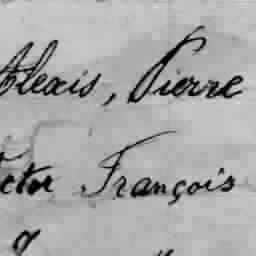 Alexis, Pierre
ctor François